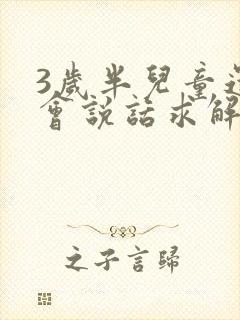 3歲半兒童還
會說話求解
之子言歸